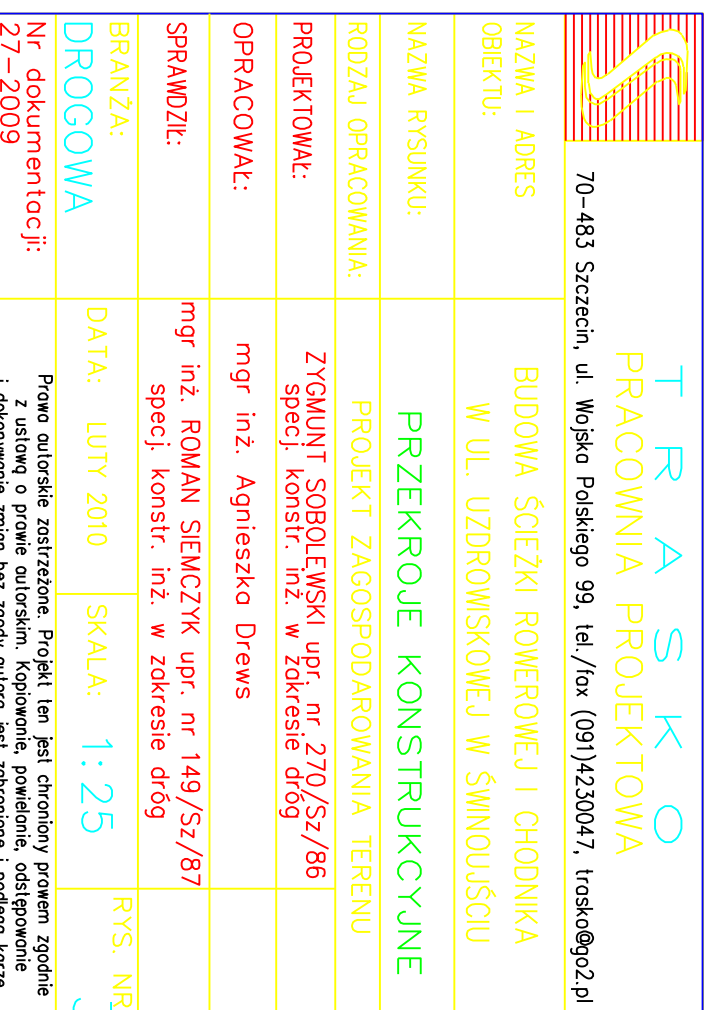 T R A S K O
PRACOWNIA PROJEKTOWA
70-483 Szczecin, ul. Wojska Polskiego 99, tel./fax (091)4230047, trasko@go2.pl
NAZWA I ADRES
OBIEKTU:
BUDOWA ŚCIEŻKI ROWEROWEJ I CHODNIKA
W UL. UZDROWISKOWEJ W ŚWINOUJŚCIU
NAZWA RYSUNKU:
PRZEKROJE KONSTRUKCYJNE
RODZAJ OPRACOWANIA:
PROJEKT ZAGOSPODAROWANIA TERENU
PROJEKTOWAŁ:
ZYGMUNT SOBOLEWSKI upr. nr 270/Sz/86
specj. konstr. inż. w zakresie dróg
OPRACOWAŁ:
mgr inż. Agnieszka Drews
SPRAWDZIŁ:
mgr inż. ROMAN SIEMCZYK upr. nr 149/Sz/87
specj. konstr. inż. w zakresie dróg
BRANŻA:
DROGOWA
DATA: LUTY 2010
SKALA: 1:25
RYS. NR
Nr dokumentacji:
27-2009
Prawa autorskie zastrzeżone. Projekt ten jest chroniony prawem zgodnie
z ustawą o prawie autorskim. Kopiowanie, powielanie, odstępowanie
i dokonywanie zmian bez zgody autora jest zabronione i podlega karze